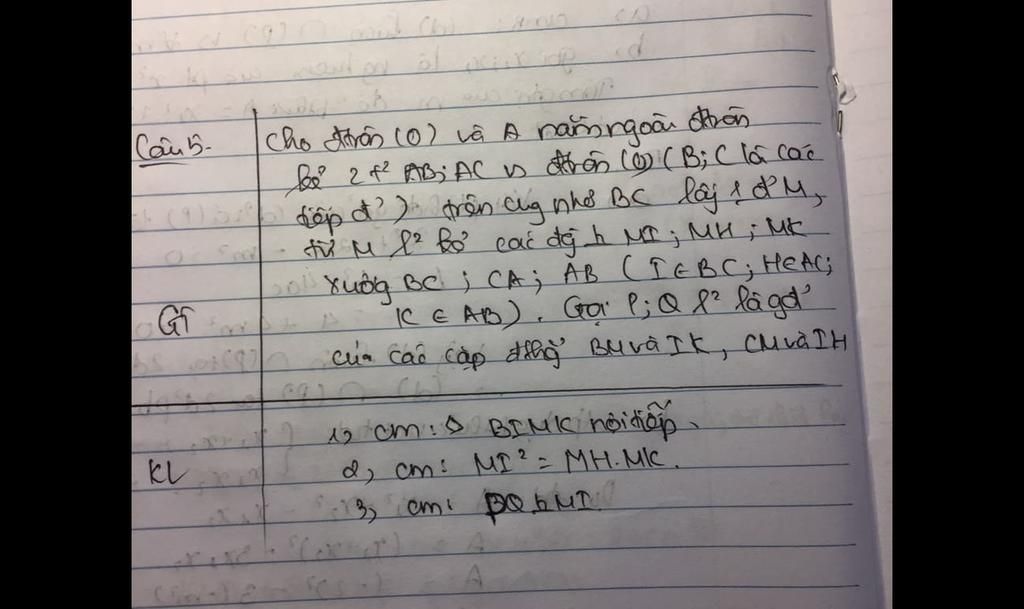 Câu 5. Cho đtròn (O) và A nằm ngoài đtròn
kẻ 2 t² AB; AC vs đtròn (O) (B; C là các
tiếp đ') trên cung nhỏ BC lấy 1 đ' M,
từ M l² kẻ các đg ⊥ MI; MH; MK
xuống BC; CA; AB (I ∈ BC; H ∈ AC;
GT K ∈ AB). Gọi P; Q l² là gđ'
của các cặp đthg BM và IK, CM và IH
1, cm: ◊ BIMK nội tiếp.
KL 2, cm: MI² = MH.MK.
3, cm: PQ ⊥ MI.